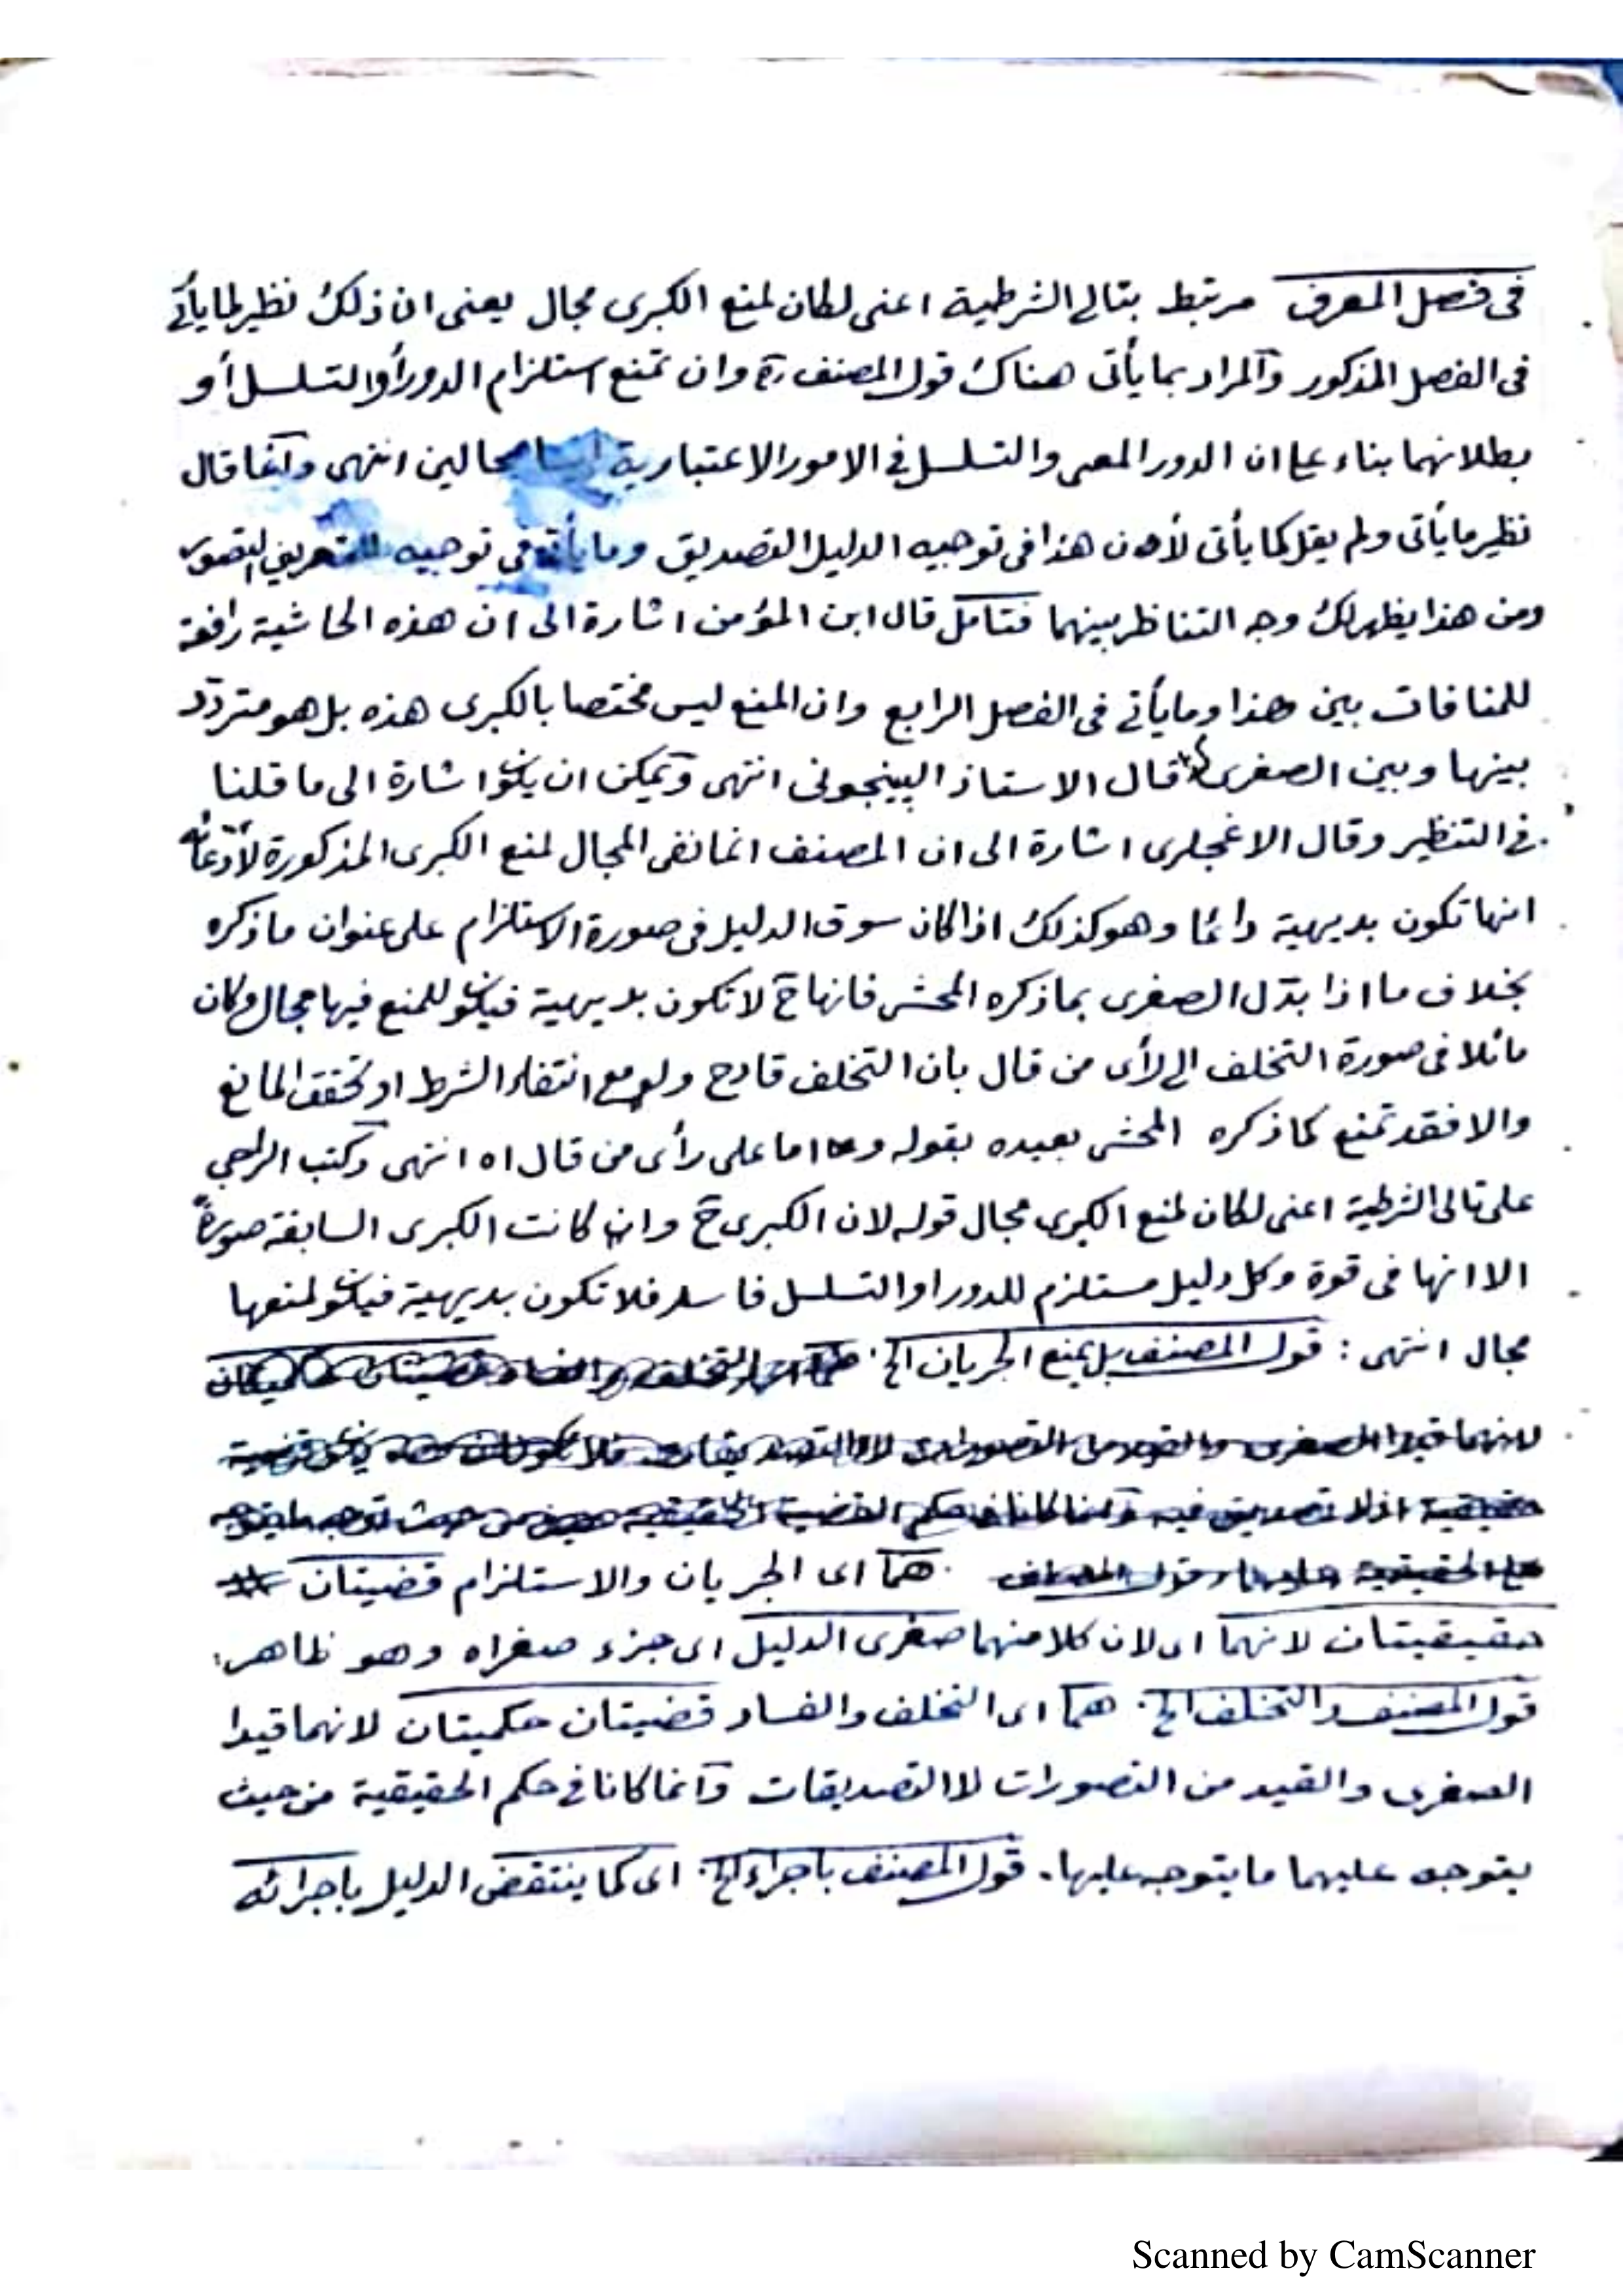 فى فصل المعرف مرتبط بتالى الشرطية اعنى لكان لمنع الكبرى مجال يعنى ان ذلك نظير لما يأتى
فى الفصل المذكور والمراد بما يأتى هناك قول المصنف وان تمنع استلزام الدور أو التسلسل أو
بطلانهما بناء على ان الدور المعى والتسلسل فى الامور الاعتبارية ليسا محالين انتهى وانما قال
نظير ما يأتى ولم يقل كما يأتى لأن هذا فى توجيه الدليل التصديق وما يأتى فى توجيه التعريف التصور
ومن هذا يظهر لك وجه التناظر بينهما فتامل قال ابن المؤمن اشارة الى ان هذه الحاشية رافعة
للمنافات بين هذا وما يأتى فى الفصل الرابع وان المنع ليس مختصا بالكبرى هذه بل هو متردد
بينها وبين الصغرى قال الاستاذ البينجونى انتهى ويمكن ان يكون اشارة الى ما قلنا
فى التنظير وقال الاغجلرى اشارة الى ان المصنف انما نفى المجال لمنع الكبرى المذكورة لأدعائه
انها تكون بديهية دائما وهو كذلك اذا كان سوق الدليل فى صورة الاستلزام على عنوان ما ذكره
بخلاف ما اذا بدّل الصغرى بما ذكره المحشى فانها ح لا تكون بديهية فيكون للمنع فيها مجال وكان
مائلا فى صورة التخلف الى رأى من قال بان التخلف قادح ولو مع انتفاء الشرط او تحقق المانع
والا فقد تمنع كما ذكره المحشى بعيده بقوله واما على رأى من قال اه انتهى وكتب الراجى
على تالى الشرطية اعنى لكان لمنع الكبرى مجال قوله لان الكبرى ح وان كانت الكبرى السابقة صورةً
الا انها فى قوة وكل دليل مستلزم للدور او التسلسل فاسد فلا تكون بديهية فيكون لمنعها
مجال انتهى : قول المصنف بل يمنع الجريان الخ.
هما اى الجريان والاستلزام قضيتان
حقيقيتان لانهما اى لان كلا منهما صغرى الدليل اى جزء صغراه وهو ظاهر:
قول المصنف والتخلف الخ. هما اى التخلف والفساد قضيتان حكميتان لانهما قيدا
الصغرى والقيد من التصورات لا التصديقات وانما كانا فى حكم الحقيقية من حيث
يتوجه عليهما ما يتوجه عليها. قول المصنف باجراء الخ. اى كما ينتقض الدليل باجرائه
Scanned by CamScanner